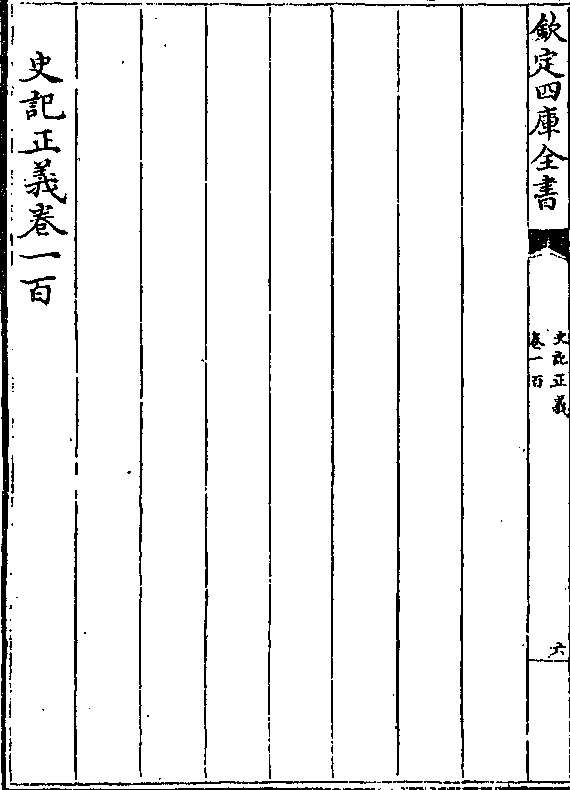 欽定四庫全書
史記正義
卷一百
六
史記正義卷一百